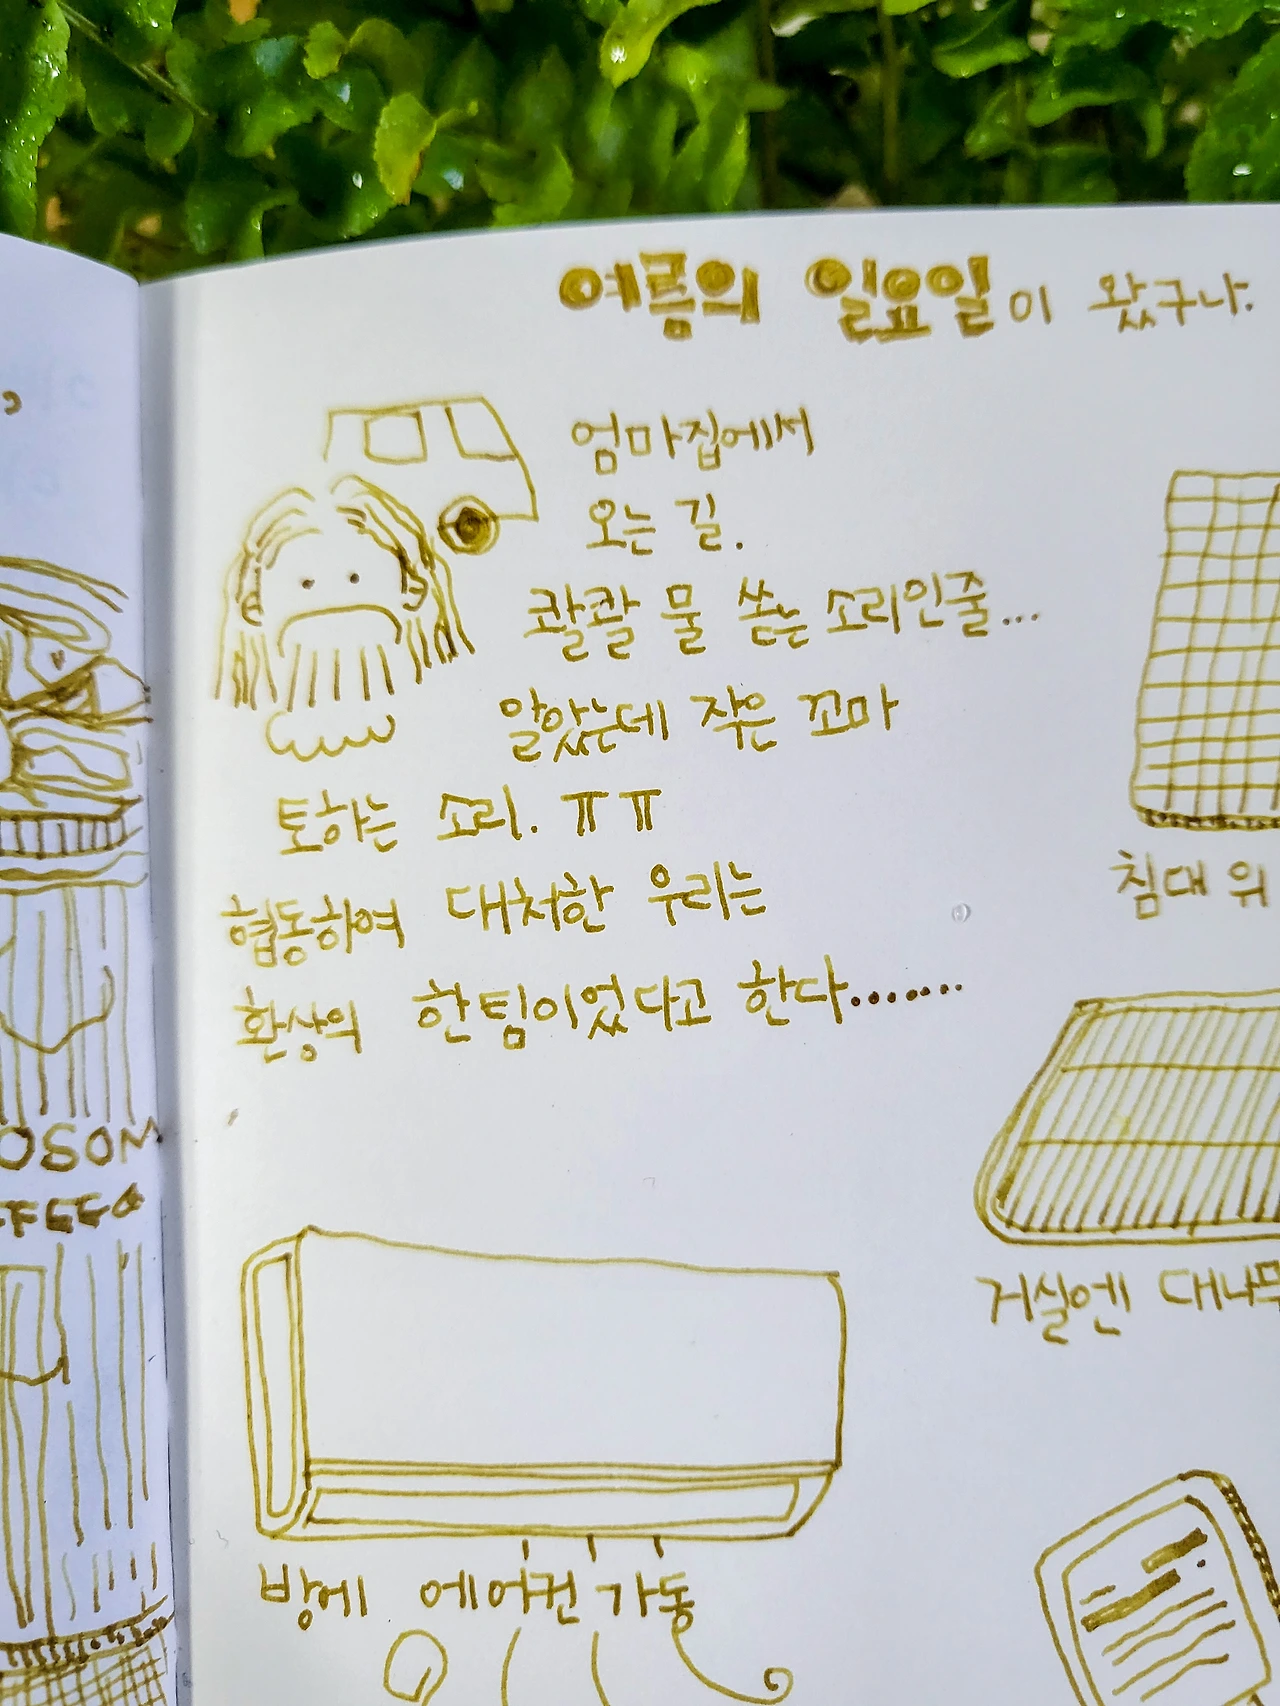 여름의 일요일이 왔구나.
엄마집에서
오는 길.
콸콸 물 쏟는 소리인줄...
알았는데 작은 꼬마
토하는 소리. ㅠㅠ
협동하여 대처한 우리는
환상의 한팀이었다고 한다........
침대 위
거실엔 대나무
방에 에어컨 가동